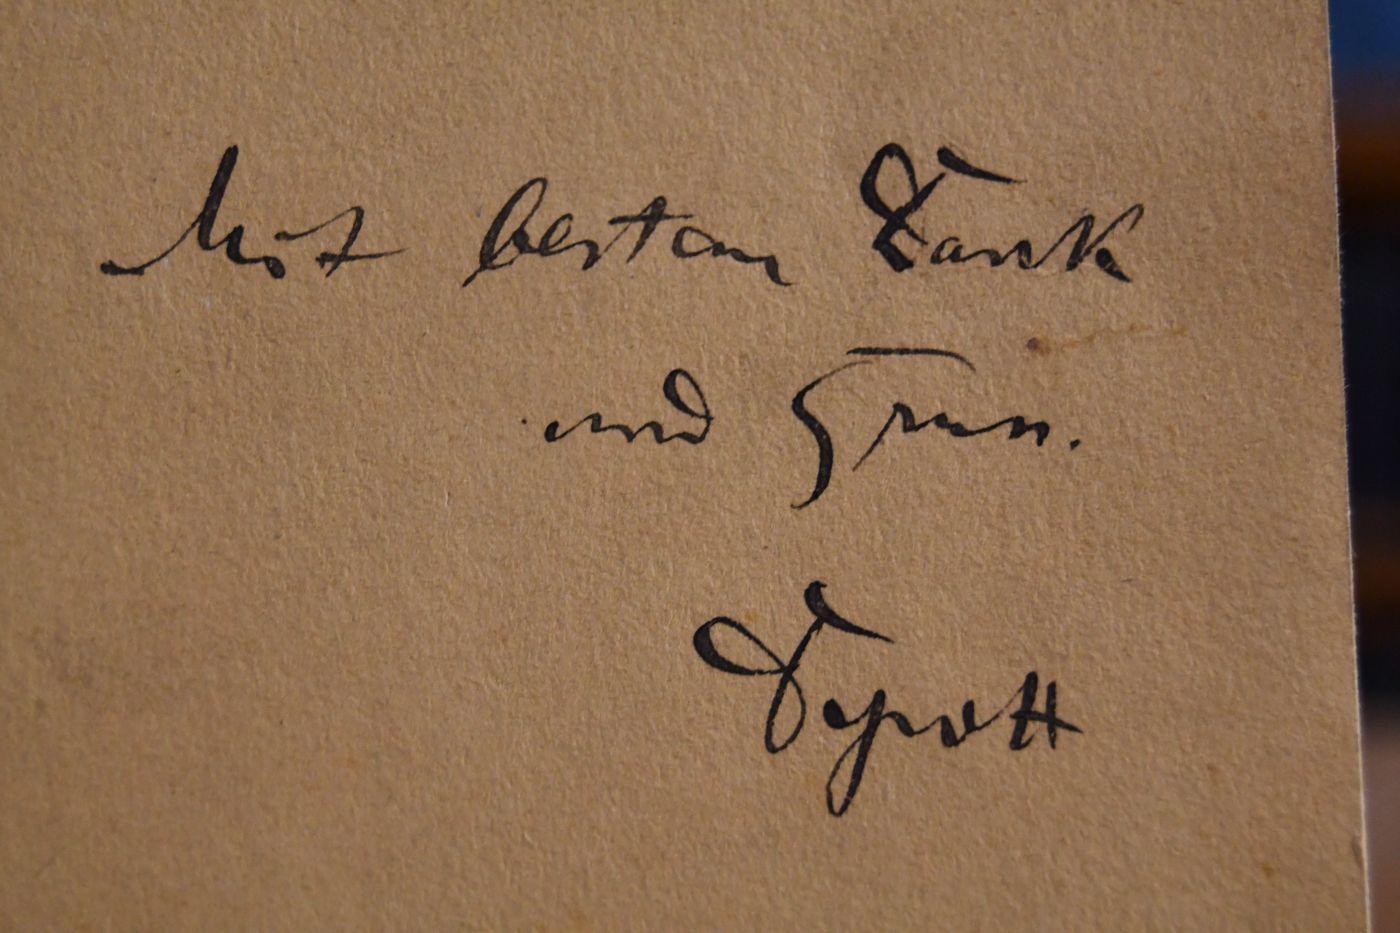 Mit bestem Dank
und Gruss.